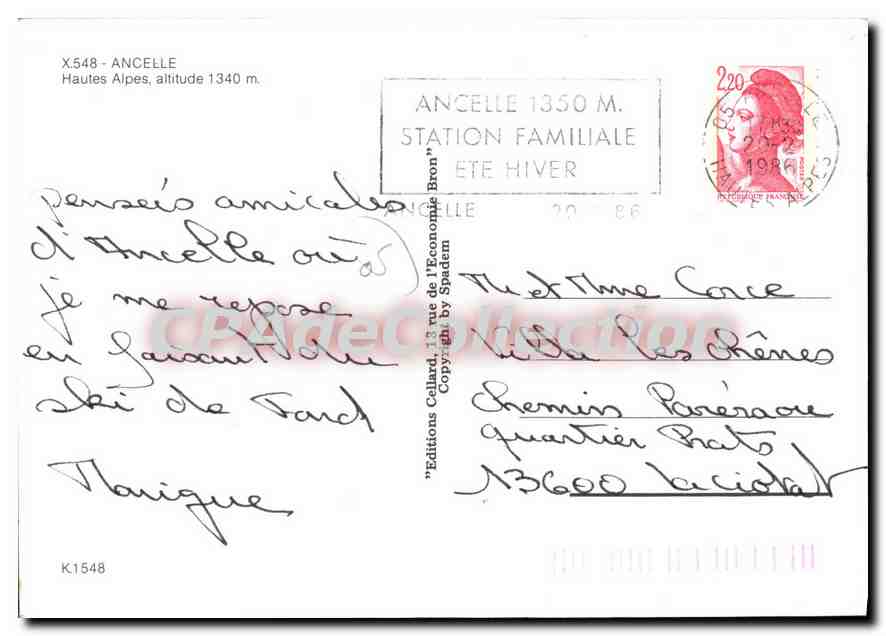 X.548 - ANCELLE
Hautes Alpes, altitude 1340 m.
ANCELLE 1350 M.
STATION FAMILIALE
ETE HIVER
ANCELLE 20 86
2,20
05 LLE
20-2
1986
HAUTES ALPES
REPUBLIQUE FRANÇAISE
penseés amicales
d'Ancelle où
je me repose
en faisant du
ski de Fond
Monique
"Editions Cellard, 13 rue de l'Economie Bron"
Copyright by Spadem
Mr et Mme Corce
Villa les chênes
Chemin Paréraou
quartier Prats
13600 La Ciotat
CPAdeCollection
K.1548